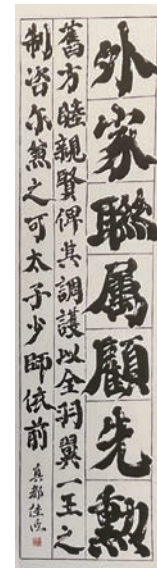 外家聯属顧先勳
舊方睦親賢俾其調護以全羽翼一王之
制咨尔兼之可太子少師依前